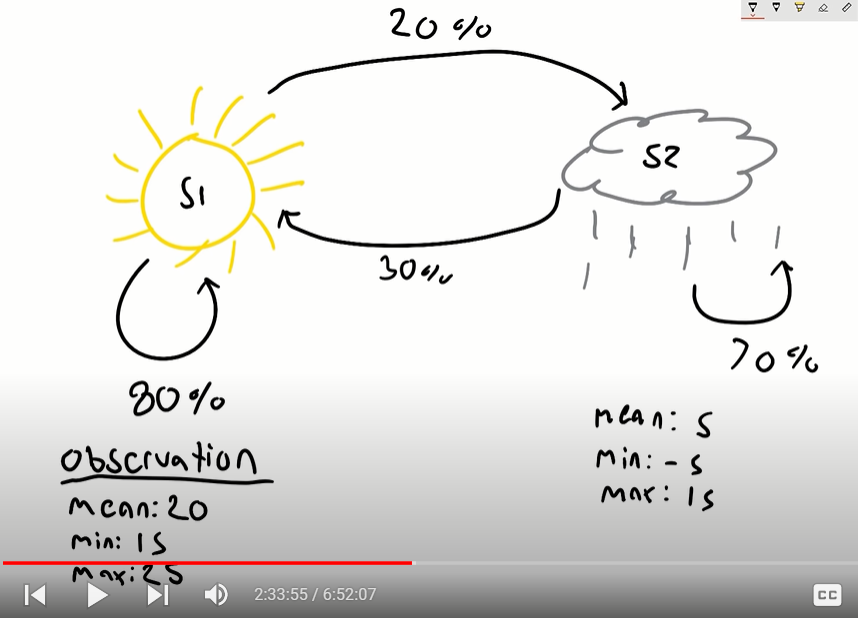 20%
S1
S2
30%
70%
80%
observation
mean: 20
min: 15
max: 25
mean: 5
min: -5
max: 15
2:33:55 / 6:52:07
CC